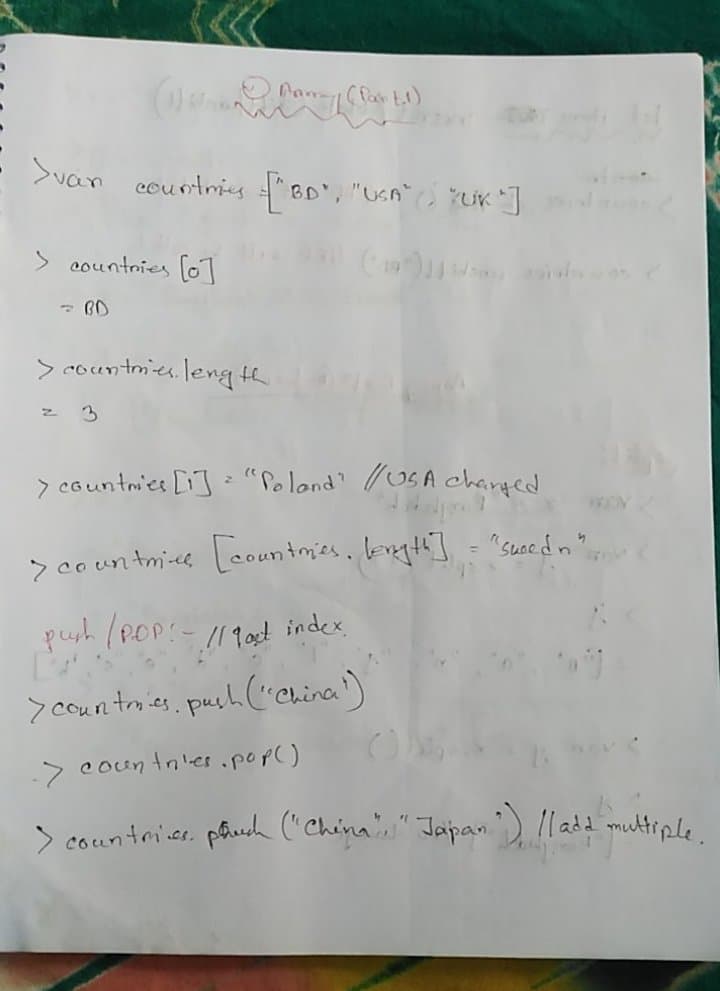 Array (Part:1)
>var countries = ["BD", "USA", "UK"]
> countries [0]
= BD
> countries.length
= 3
> countries [1] = "Poland" //USA changed
> countries [countries.length] = "suedn"
push / POP:- // last index.
> countries.push("China")
> countries.pop()
> countries. push ("China", "Japan") //add multiple.